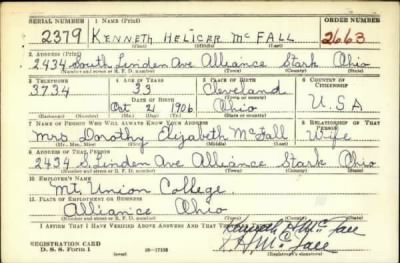 SERIAL NUMBER 1. NAME (Print) ORDER NUMBER
2379 KENNETH HELIGER MCFALL 2663
(First) (Middle) (Last)
2. ADDRESS (Print)
2434 South Linden Ave Alliance Stark Ohio
(Number and street or R. F. D. number) (Town) (County) (State)
3. TELEPHONE 4. AGE IN YEARS 5. PLACE OF BIRTH 6. COUNTRY OF CITIZENSHIP
3734 33 Cleveland
DATE OF BIRTH (Town or county)
Oct 21 1906 Ohio U.S.A
(Mo.) (Day) (Yr.) (State or country)
7. NAME OF PERSON WHO WILL ALWAYS KNOW YOUR ADDRESS 8. RELATIONSHIP OF THAT PERSON
Mrs. Dorothy Elizabeth McFall Wife
(Mr., Mrs., Miss) (First) (Middle) (Last)
9. ADDRESS OF THAT PERSON
2434 S. Linden Ave Alliance Stark Ohio
(Number and street or R. F. D. number) (Town) (County) (State)
10. EMPLOYER'S NAME
Mt. Union College
11. PLACE OF EMPLOYMENT OR BUSINESS
Alliance Ohio
(Number and street or R. F. D. number) (Town) (County) (State)
I AFFIRM THAT I HAVE VERIFIED ABOVE ANSWERS AND THAT THEY ARE TRUE.
Kenneth H McFall
REGISTRATION CARD
D. S. S. Form 1 (over) 16-17105 (Registrant's signature)
K H McFall